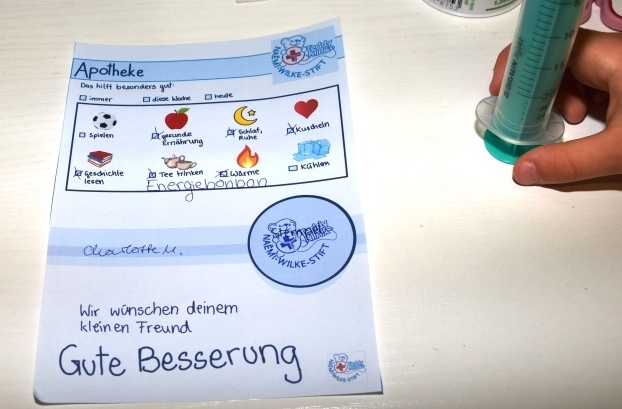 Apotheke
Teddy Klinik
NAEMI-WILKE-STIFT
Das hilft besonders gut:
immer diese Woche heute
Spielen gesunde Ernährung Schlaf, Ruhe Kuscheln
Geschichte lesen Tee trinken Wärme Kühlen
Energiebonbon
Charlotte M.
Stempel
NAEMI-WILKE-STIFT
Wir wünschen deinem
kleinen Freund
Gute Besserung
NAEMI-WILKE-STIFT